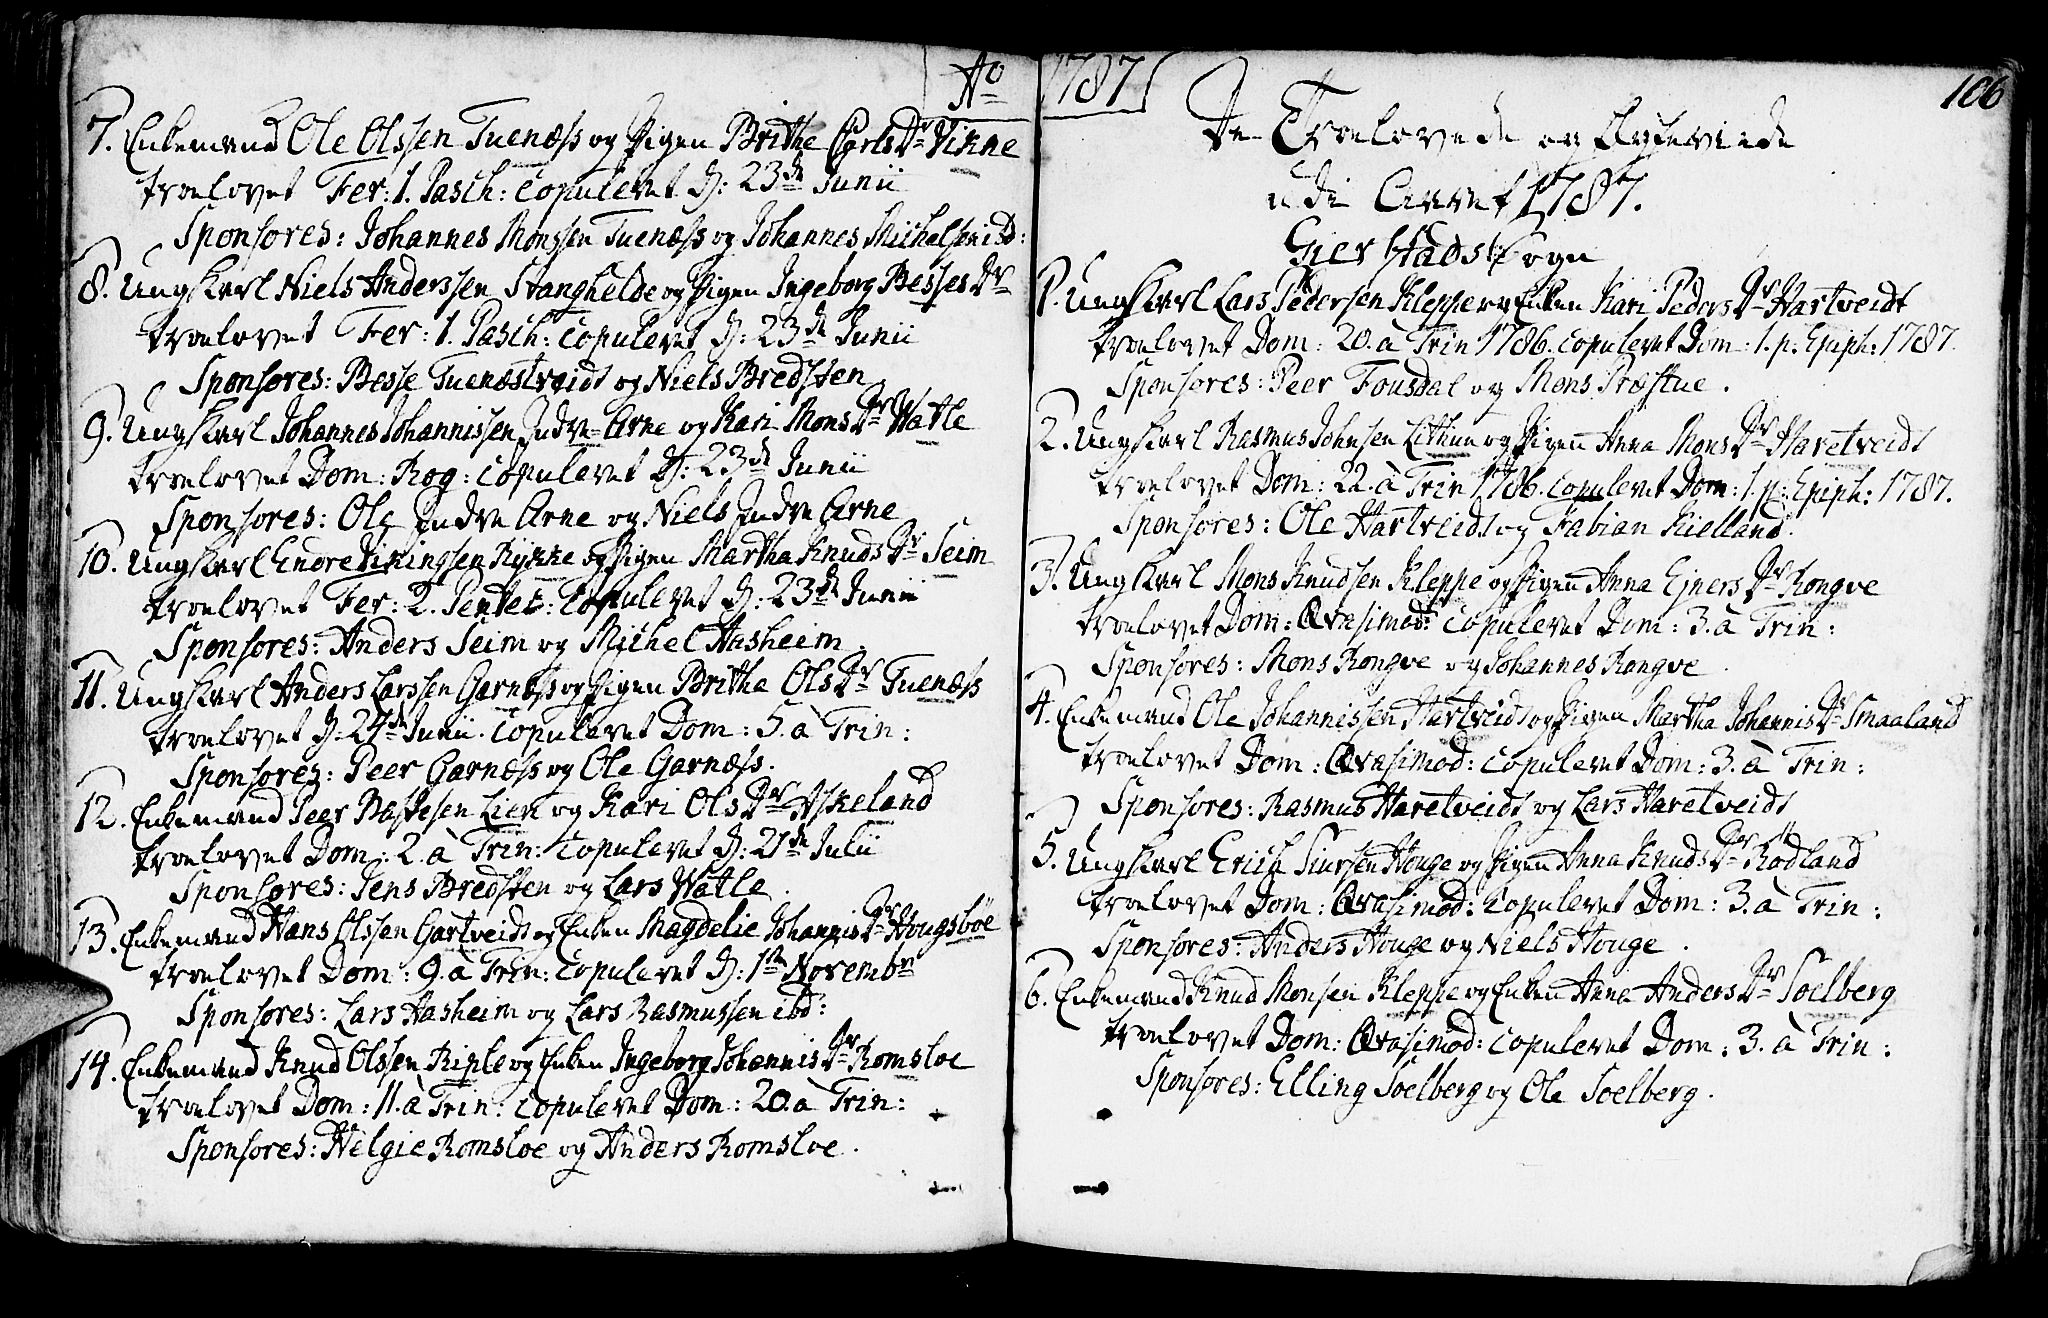 Ao 1787
7. Enkemand Ole Olssen Tuenæss og Pigen Brithe Carls Dr Vikne
troelovet Fer: 1. Pasch: copuleret d: 23de Junii
Sponsores: Johannes Monssen Tuenæss og Johannes Michelsen ibd:
8. Ungkarl Niels Anderssen Stanghelde og Pigen Ingeborg Besses Dr
troelovet Fer: 1. Pasch: copuleret d: 23de Junii
Sponsores: Besse Tuenæstveidt og Niels Bredsten
9. Ungkarl Johannes Johannissen Indre-Arne og Kari Mons Dr Watle
troelovet Dom: Rog: copuleret d: 23de Junii
Sponsores: Ole Indre Arne og Niels Indre Arne
10. Ungkarl Endre Vikingsen Rykke og Pigen Martha Knuds Dr Seim
troelovet Fer: 2. Pentec: copuleret d: 23de Junii
Sponsores: Anders Seim og Michel Aasheim
11. Ungkarl Anders Larssen Garnæss og Pigen Britha Ols Dr Tuenæss
troelovet d: 24de Junii. copuleret Dom: 5. à Trin:
Sponsores: Peer Garnæss og Ole Garnæss.
12. Enkemand Peer Baltesen Lien og Kari Ols Dr Askeland
troelovet Dom: 2. à Trin: copuleret d: 21de Julii
Sponsores: Jens Bredsten og Lars Watle.
13. Enkemand Hans Olssen Gartveidt og Enken Magdelie Johannis Dr Hougsböe
troelovet Dom: 9. à Trin: copuleret d: 1ste Novembr
Sponsores: Lars Aasheim og Lars Rasmussen ibd:
14. Enkemand Knud Olssen Riple og Enken Ingeborg Johannis Dr Romsloe
troelovet Dom: 11. à Trin: copuleret Dom: 20. à Trin:
Sponsores: Helgie Romsloe og Anders Romsloe.
106
De Troelovede og Ægteviede
udi Aaret 1787.
Gierstad Sogn
1. Ungkarl Lars Pedersen Kleppe og Enken Kari Peders Dr Hartveidt
troelovet Dom: 20. à Trin 1786. copuleret Dom: 1. p: Epiph: 1787.
Sponsores: Peer Fousdal og Mons Præstue.
2. Ungkarl Rasmus Johnsen Lithun og Pigen Anna Mons Dr Haretveidt
troelovet Dom: 22. à Trin 1786. copuleret Dom: 1. p: Epiph: 1787.
Sponsores: Ole Hartveidt og Fabian Kielland.
3. Ungkarl Mons Knudsen Kleppe og Pigen Anna Ejners Dr Rongve
troelovet Dom: Qvasimod: copuleret Dom: 3. à Trin:
Sponsores: Mons Rongve og Johannes Rongve.
4. Enkemand Ole Johannissen Hartveidt og Pigen Martha Johannis Dr Smaaland
troelovet Dom: Qvasimod: copuleret Dom: 3. à Trin:
Sponsores: Rasmus Haretveidt og Lars Haretveidt
5. Ungkarl Erich Siursen Houge og Pigen Anna Knuds Dr Rödland
troelovet Dom: Qvasimod: copuleret Dom: 3. à Trin:
Sponsores: Anders Houge og Niels Houge.
6. Enkemand Knud Monsen Kleppe og Enken Anna Anders Dr Soelberg
troelovet Dom: Qvasimod: copuleret Dom: 3. à Trin:
Sponsores: Elling Soelberg og Ole Soelberg.